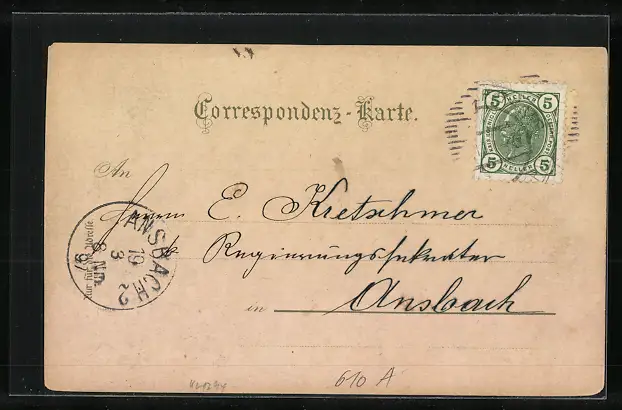 Correspondenz-Karte.
5 HELLER 5
5 HELLER 5
An
Herrn E. Kretschmer
Regierungssekretär
in Ansbach
Nur für die Adresse
ANSBACH 2
19
3
8 NM
97
610 A